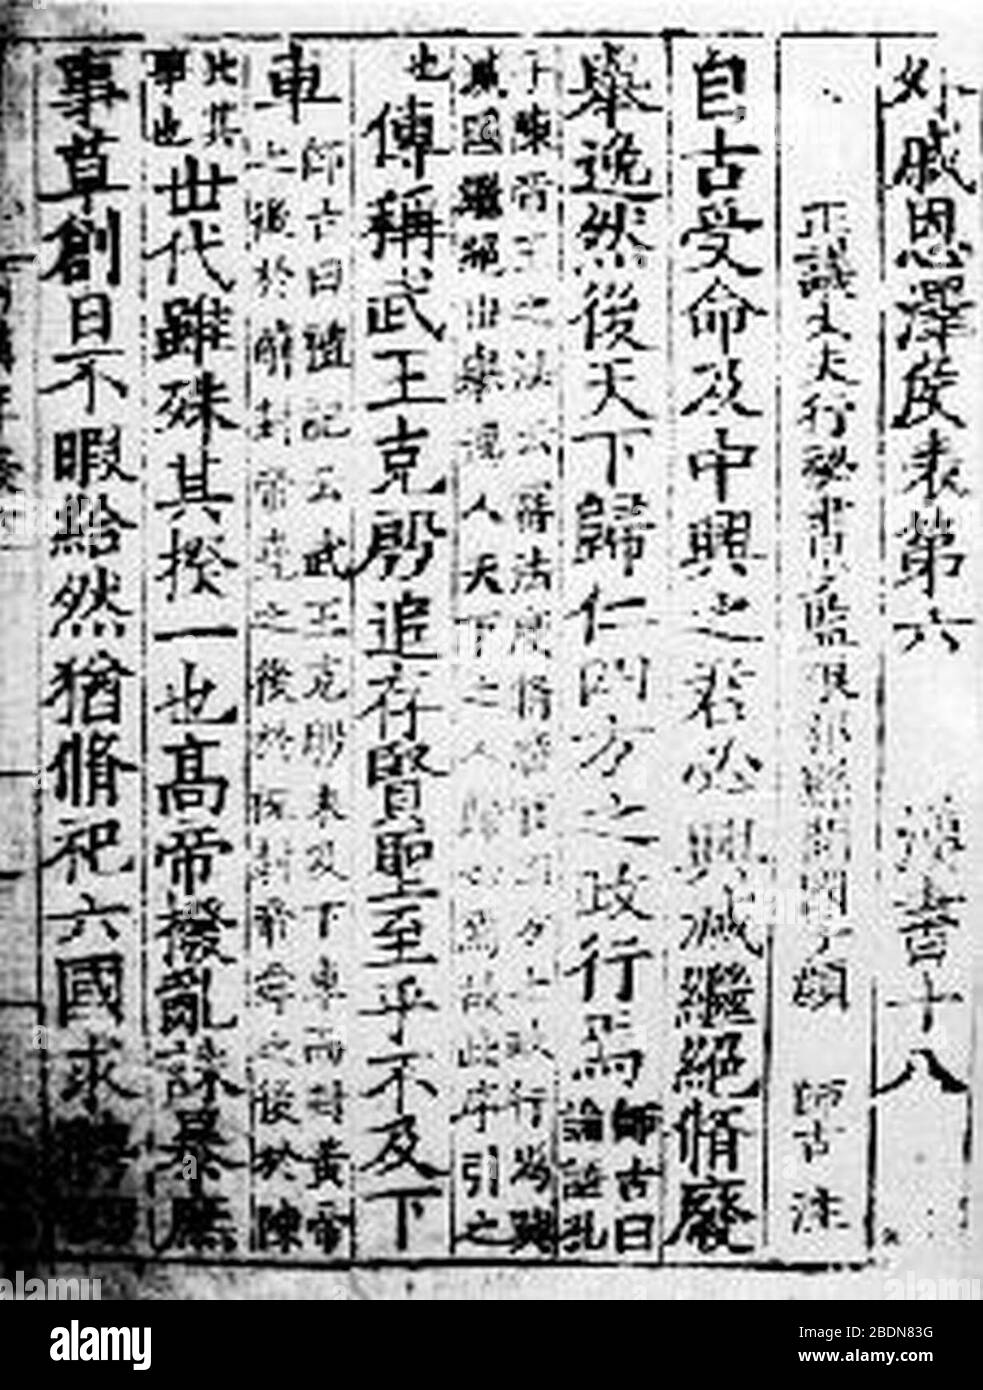 外戚恩澤侯表第六 漢書十八
正議大夫行祕書少監琅邪縣開國子顏 師古 注
自古受命及中興之君必興滅繼絕脩廢
舉逸然後天下歸仁四方之政行焉師古曰論語孔
子陳帝王之法云謹法度脩廢官四方之政行焉興
滅國繼絕世舉逸人天下之人歸心焉故此序引之
也傳稱武王克殷追存賢聖至乎不及下
車師古曰禮記云武王克殷未及下車而封黃帝
之後於薊封帝堯之後於祝封帝舜之後於陳
此其事也世代雖殊其揆一也高帝撥亂誅暴庶
事草創日不暇給然猶脩祀六國求聘四
alamy
Image ID: 2BDN83G
www.alamy.com